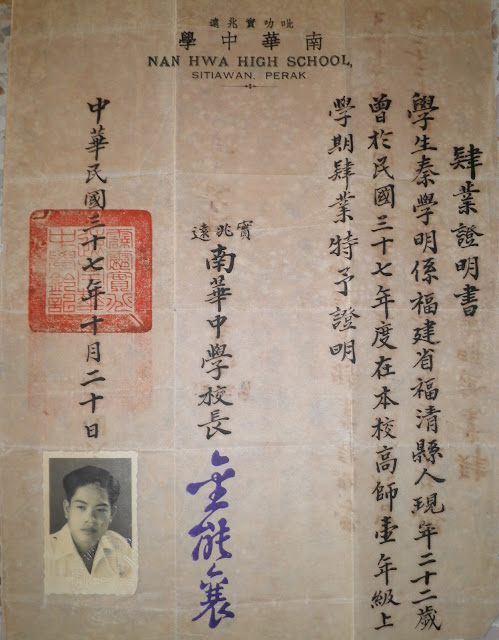 吡叻實兆遠
南華中學
NAN HWA HIGH SCHOOL,
SITIAWAN, PERAK
肄業證明書
學生秦學明係福建省福清縣人現年二十二歲
曾於民國三十七年度在本校高師壹年級上
學期肄業特予證明
實兆遠
南華中學校長
中華民國三十七年十月二十日